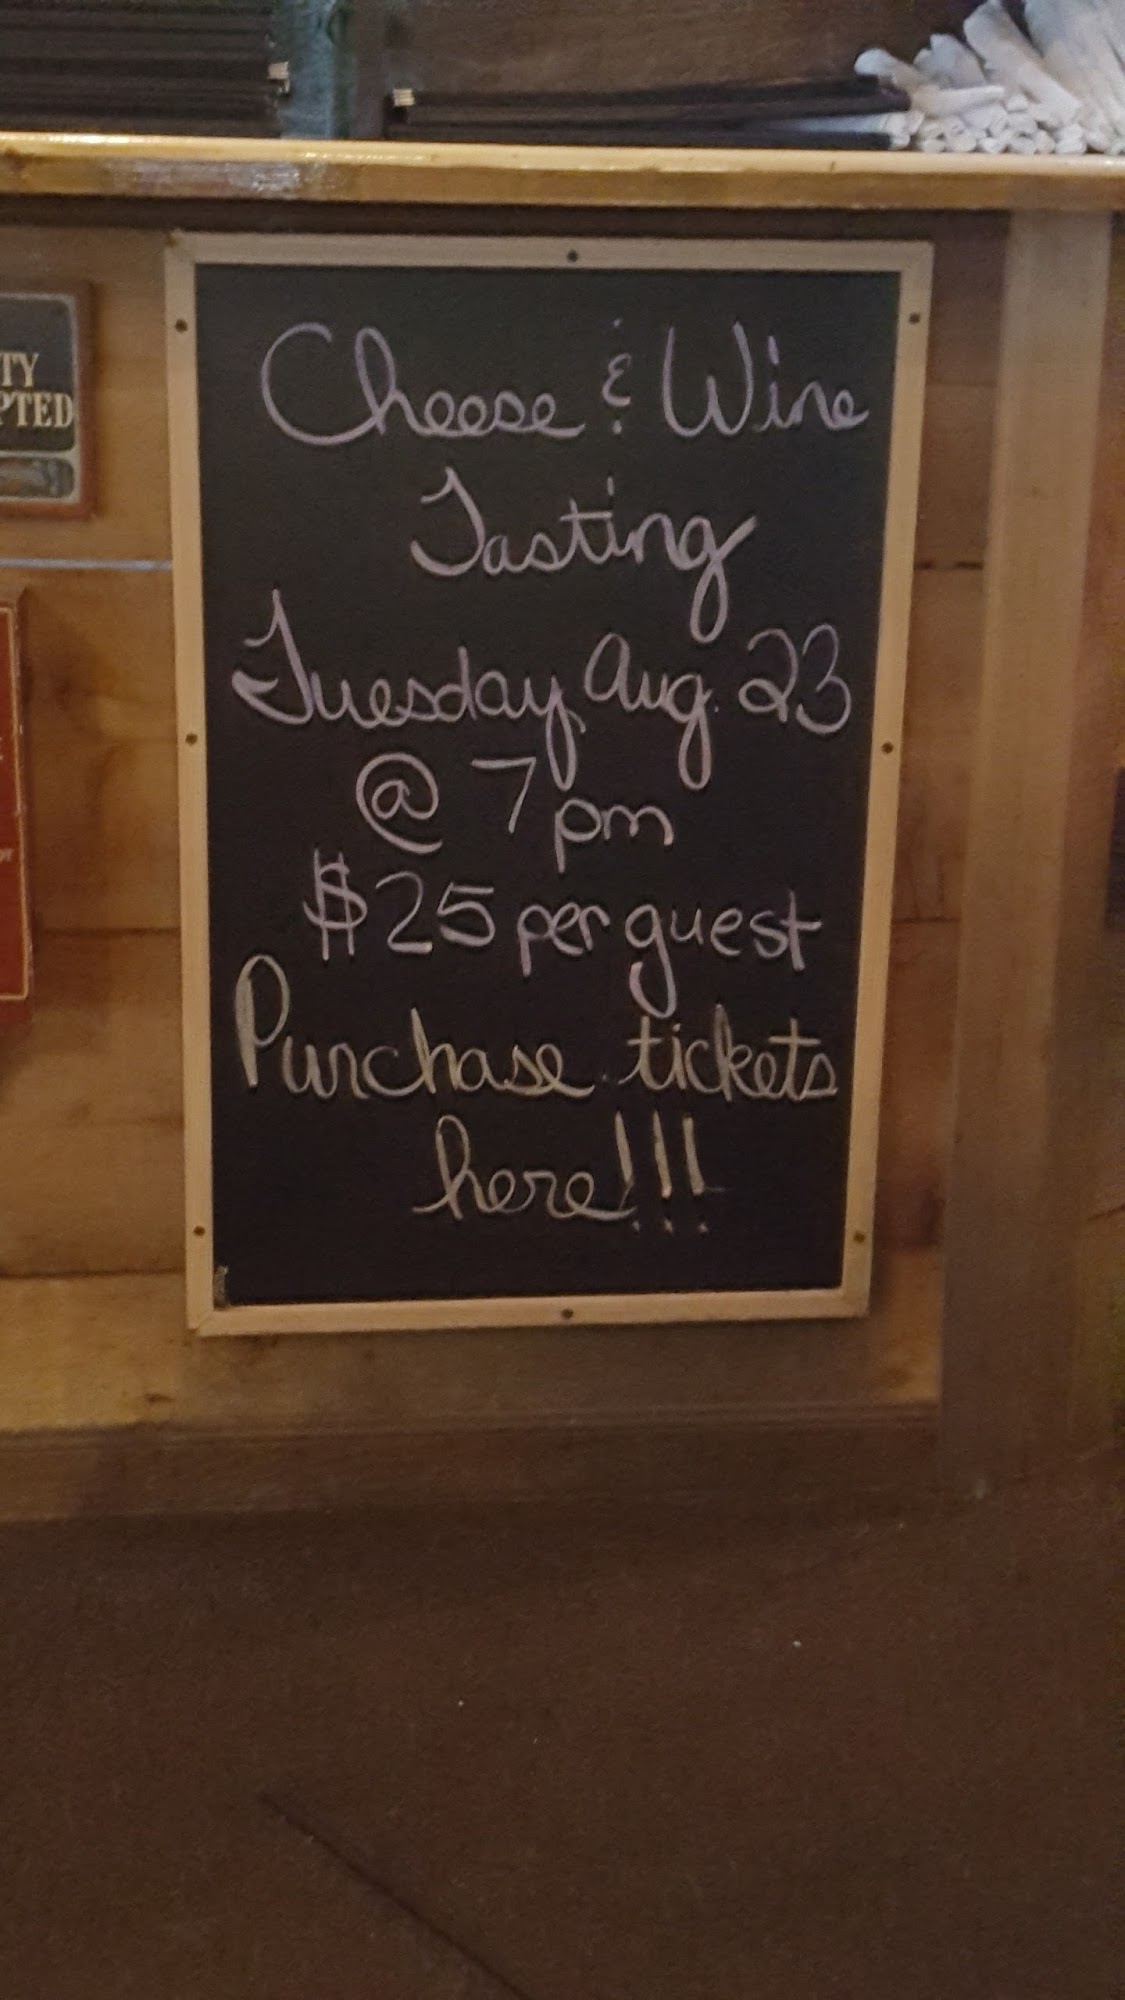 Cheese & Wine
Tasting
Tuesday Aug. 23
@ 7 pm
$25 per guest
Purchase tickets
here!!!
TY
PTED